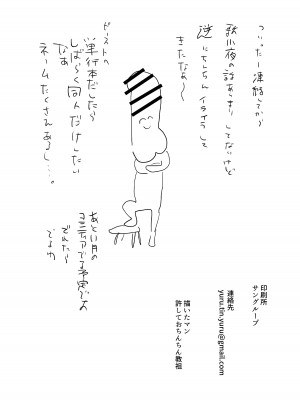 ついったー凍結してから
小夜の話あんまりしてないけど
逆にちんちんイライラして
きたなぁ〜
ビーストの
単行本だしたら
しばらく同人だけしたい
なぁ
ネームたくさんあるし…。
あと11月の
コミティアでる予定です
でれたら
でるね
印刷所
サングループ
連絡先
yuru.tin.yuru@gmail.com
描いたマン
許しておちんちん教祖